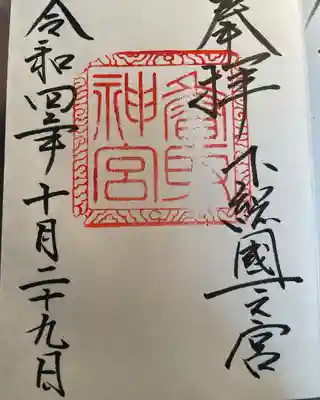 奉拝 下総國一之宮
香取
神宮
令和四年十月二十九日